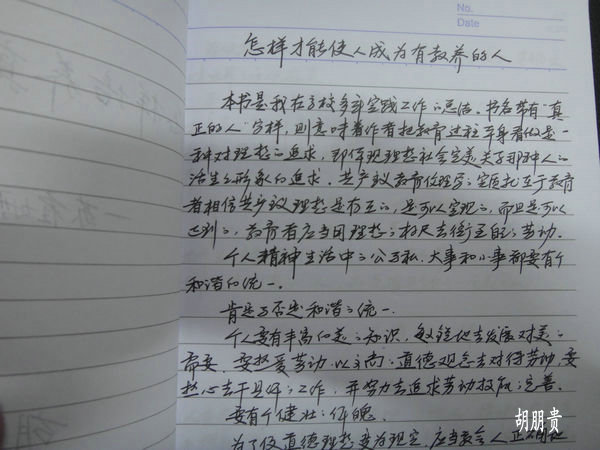 No.
Date
怎样才能使人成为有教养的人
本书是我在学校多年实践工作的总结。书名带有“真
正的人”字样，则意味着作者把教育过程本身看做是一
种对理想的追求，即体现理想社会完美关于那种人的
活生生形象的追求。共产主义教育伦理学的实质就在于教育
者相信共产主义理想是存在的，是可以实现的，而且是可以
达到的，教育者应当用理想的标尺去衡量自己的劳动。
个人精神生活中的公与私、大事和小事都要有个
和谐的统一。
肯定与否定和谐的统一。
个人要有丰富的美的知识，敏锐地去发展对美的
需要，要热爱劳动，以崇高的道德观念去对待劳动，要
热心去干具体的工作，并努力去追求劳动技能的完善。
要有个健壮的体魄。
为了使道德理想变为现实，应当教会人正确地
胡朋贵